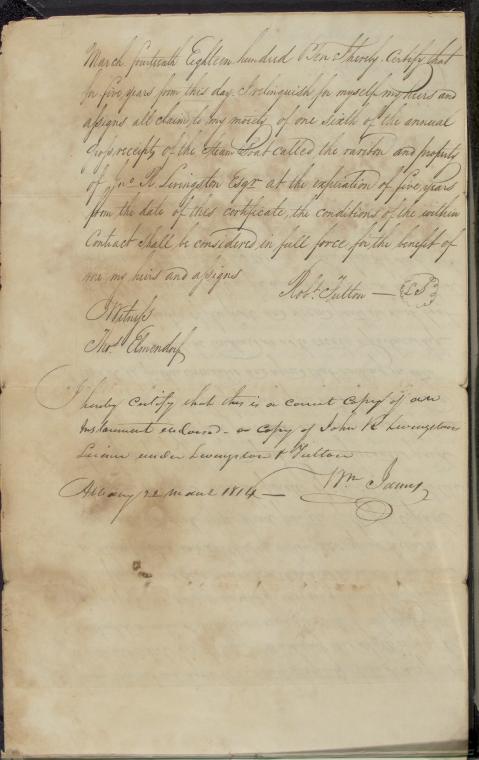 March fourteenth Eighteen hundred & Ten I hereby Certify that
for five years from this day I relinquish for myself my heirs and
assigns all claim to my moiety of one sixth of the annual
Gross receipts of the Steam Boat called the rariton and property
of Jno. R. Livingston Esqr at the expiration of five years
from the date of this certificate, the conditions of the within
Contract shall be considered in full force for the benefit of
me my heirs and assigns
Robt. Fulton — LS
Witness
Thos. Elmendorf
I hereby certify that this is a correct copy of an
instrument endorsed on a copy of John R Livingston
License under Livingston & Fulton
Albany 1814 — Wm James